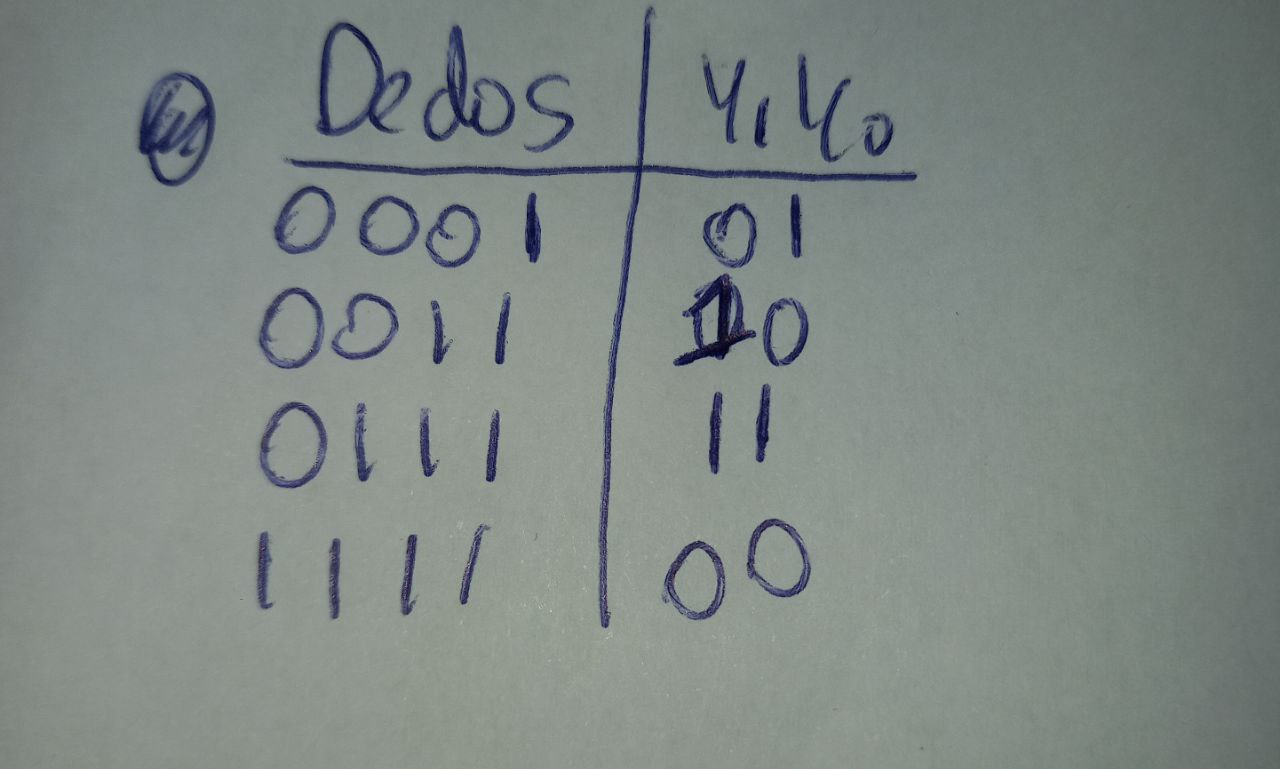 Dedos Y1 Y0
0001 01
0011 10
0111 11
1111 00